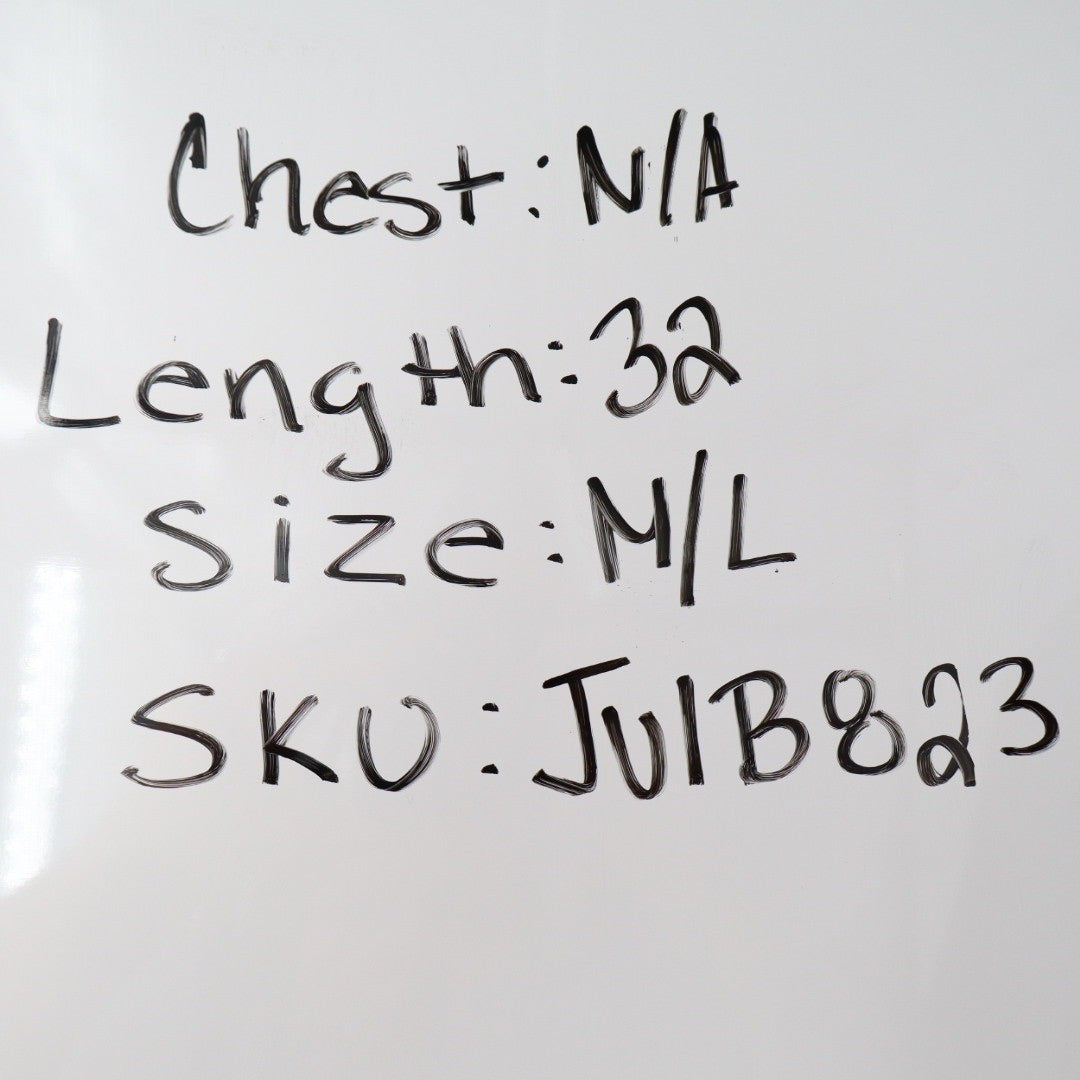 Chest: N/A
Length: 32
Size: M/L
SKU: JulB823